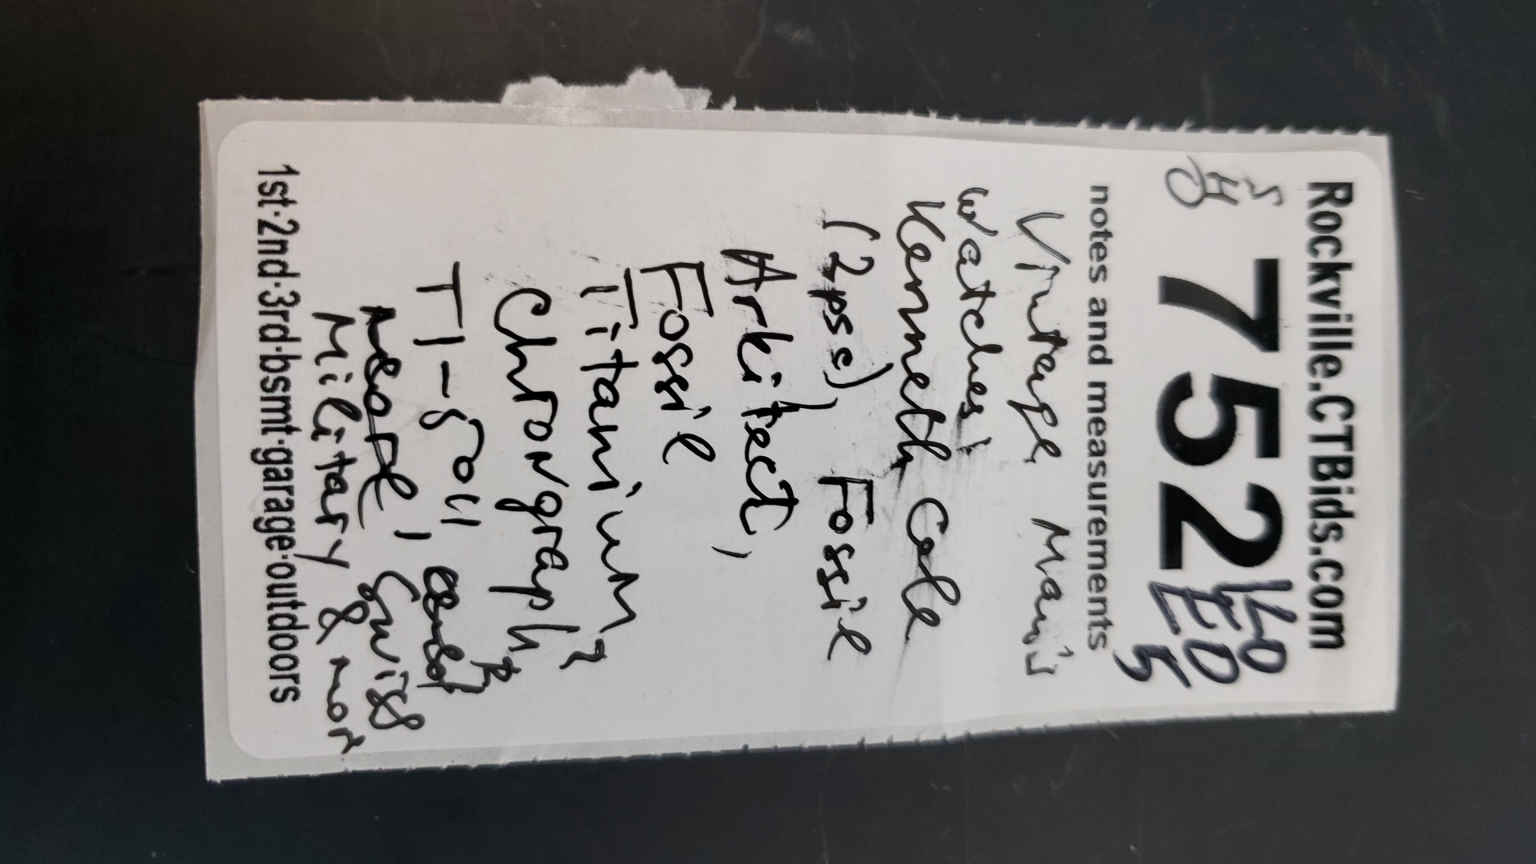 Rockville.CTBids.com
752
LEO
5
notes and measurements
Vintage Man's
watches:
Kenneth Cole
(2pss), Fossil
Arkitect,
Fossil
Titanium,
Chrongraph,
TI-5011,
Swiss
Military & mor
1st·2nd·3rd·bsmt·garage·outdoors